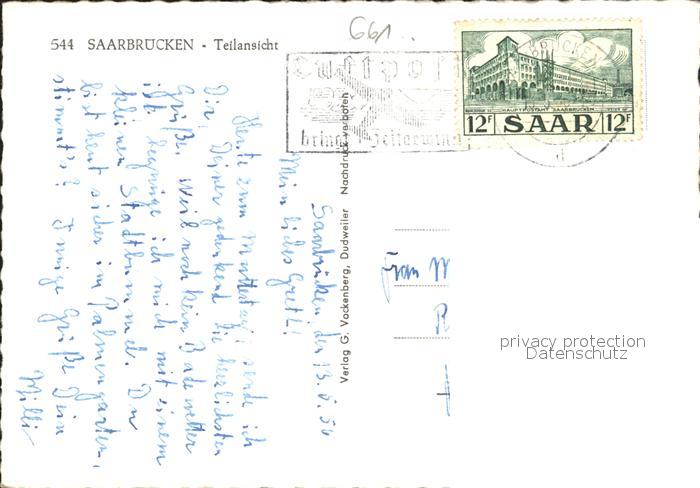 661
544 SAARBRÜCKEN - Teilansicht
Luftpost
bringt Zeitgewinn
HAUPTPOSTAMT SAARBRÜCKEN
12F SAAR 12F
d
Verlag G. Vockenberg, Dudweiler Nachdruck verboten
Saarbrücken den 13.5.56
Mein liebes Gretl!
Heute zum Muttertag, sende ich
Dir, Deiner gedenkend die herzlichsten
Grüße. Weil noch kein Badewetter
ist, begnüge ich mich mit einem
kleinen Stadtbummel. Du
bist heut sicher im Palmengarten,
stimmt's? Innige Grüße Dein
Willi
Frau M
R
privacy protection
Datenschutz